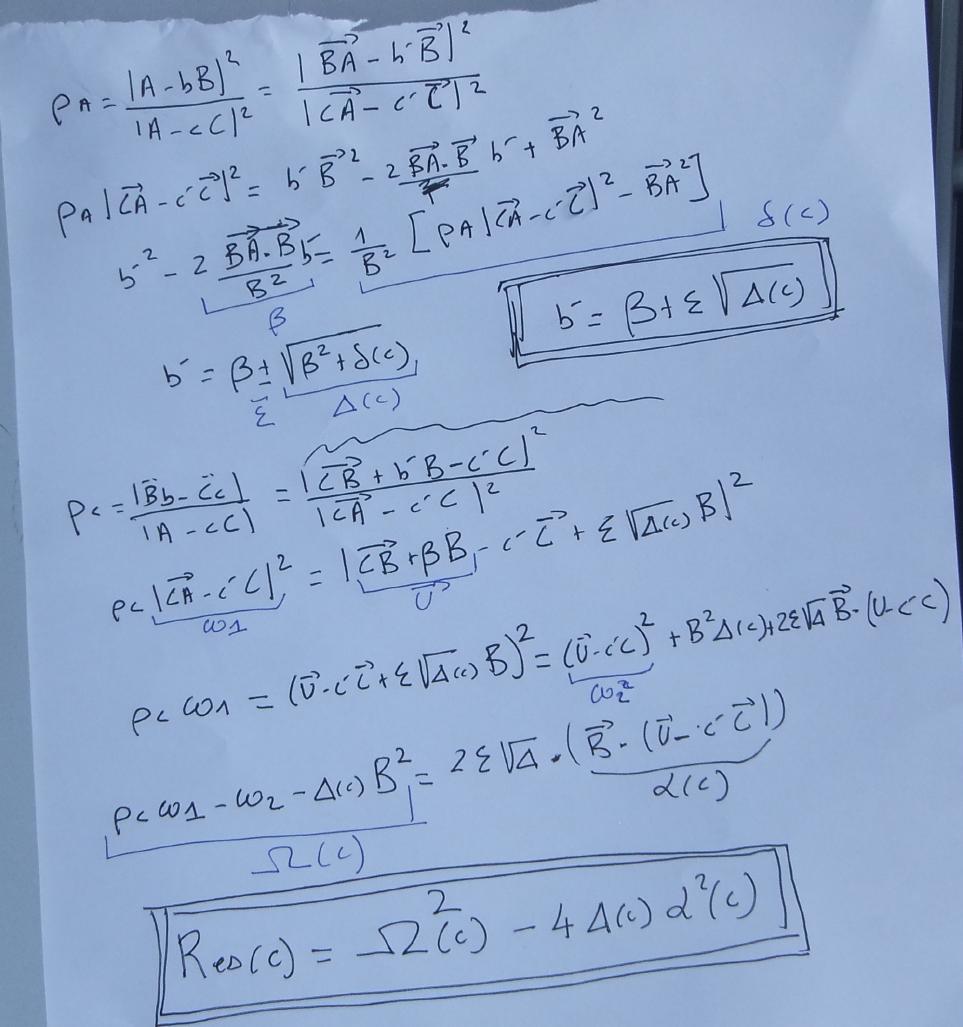 ρA = |A-bB|² / |A-cC|² = |→BA - b⁻→B|² / |→CA - c⁻→C|²
ρA|→CA - c⁻→C|² = b⁻→B² - 2 →BA·→B b⁻ + →BA²
b⁻² - 2 →BA·→B / B² b⁻ = 1/B² [ρA|→CA - c⁻→C|² - →BA²]
β δ(c)
b⁻ = β ± √B² + δ(c)
ε Δ(c)
b⁻ = β + ε √Δ(c)
ρc = |B⃗b - C⃗c| / |A - cC| = |→CB + b⁻B - c⁻C|² / |→CA - c⁻C|²
ρc |→CA - c⁻C|² = |→CB + βB - c⁻→C + ε√Δ(c) B|²
ω1 →U
ρc ω1 = (→U - c⁻→C + ε√Δ(c) B)² = (→U - c⁻C)² + B²Δ(c) + 2ε√Δ →B·(U - c⁻C)
ω2²
ρc ω1 - ω2 - Δ(c) B² = 2ε√Δ · (→B · (→U - c⁻→C))
Ω(c) α(c)
Res(c) = Ω²(c) - 4Δ(c) α²(c)